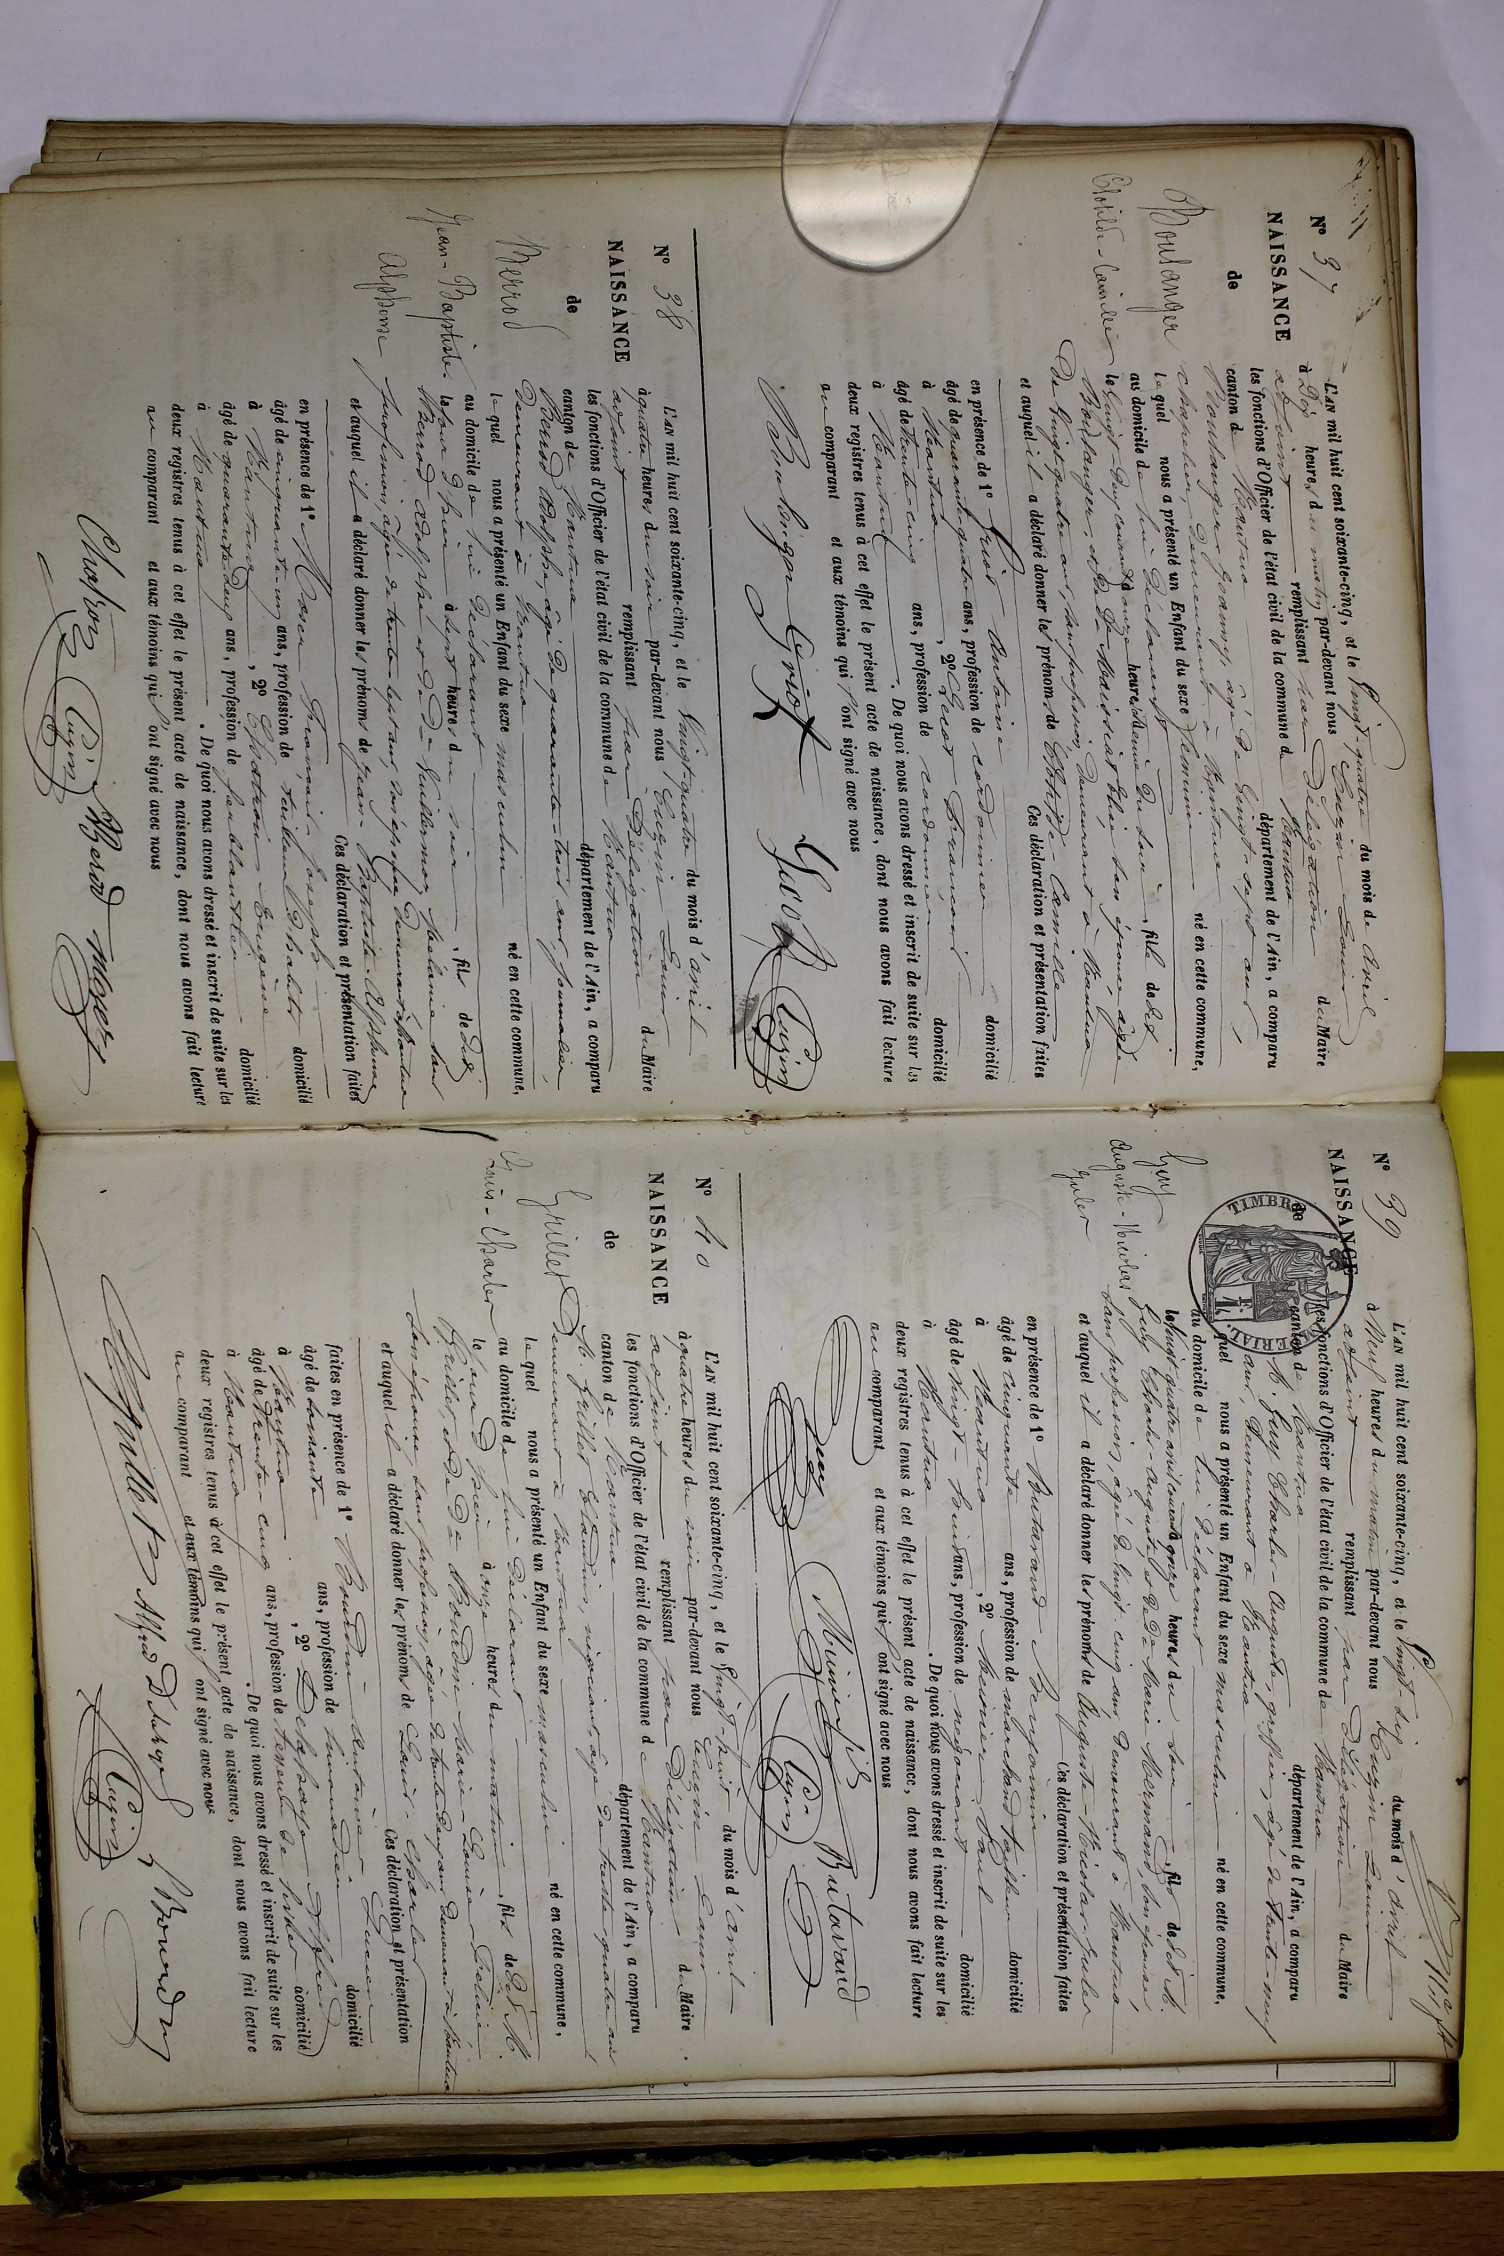 N° 37
NAISSANCE
de
Boulanger
Clotilde-Camille
L'AN mil huit cent soixante-cinq, et le Vingt-quatre du mois de Avril
à Dix heures du matin par-devant nous Cugin Louis du Maire
adjoint remplissant par Délégation
les fonctions d'Officier de l'état civil de la commune de Nantua
canton de Nantua département de l'Ain, a comparu
Boulanger âgé de Vingt-sept ans,
chapelier, demeurant à Nantua
lequel nous a présenté un Enfant du sexe féminin né en cette commune,
au domicile de lui déclarant
le Vingt-deux courant à onze heures du soir, fille dudit
Boulanger, et de son épouse, âgée
de Vingt quatre ans, sans profession, demeurant à Nantua
et auquel il a déclaré donner les prénoms de Clotilde-Camille
Ces déclaration et présentation faites
en présence de 1° Griot Antoine
âgé de quarante quatre ans, profession de cordonnier domicilié
à Nantua, 2° François
âgé de trente-cinq ans, profession de cordonnier domicilié
à Nantua. De quoi nous avons dressé et inscrit de suite sur les
deux registres tenus à cet effet le présent acte de naissance, dont nous avons fait lecture
au comparant et aux témoins qui l'ont signé avec nous
Boulanger Griot Cugin
N° 38
NAISSANCE
de
Berrod
Jean-Baptiste
Alphonse
L'AN mil huit cent soixante-cinq, et le Vingt-quatre du mois d'avril
à quatre heures du soir par-devant nous Cugin Louis du Maire
adjoint remplissant par Délégation
les fonctions d'Officier de l'état civil de la commune de Nantua
canton de Nantua département de l'Ain, a comparu
Berrod Adolphe, âgé de quarante-trois ans, journalier,
demeurant à Nantua
lequel nous a présenté un Enfant du sexe masculin né en cette commune,
au domicile de lui déclarant
le jour d'hier à sept heures du soir, fils dudit
Berrod Adolphe et de De Vuillermoz Mélanie, sans
profession, âgée de trente-sept ans, son épouse demeurant à Nantua
et auquel il a déclaré donner les prénoms de Jean-Baptiste-Alphonse
Ces déclaration et présentation faites
en présence de 1° François Joseph
âgé de cinquante un ans, profession de domicilié
à Nantua, 2° Chatron Eugène
âgé de quarante deux ans, profession de ferblantier domicilié
à Nantua. De quoi nous avons dressé et inscrit de suite sur les
deux registres tenus à cet effet le présent acte de naissance, dont nous avons fait lecture
au comparant et aux témoins qui l'ont signé avec nous
Chatron Cugin Berod
N° 39
NAISSANCE
de
Guy
Auguste-Nicolas
Jules
TIMBRE IMPÉRIAL
1 F.
L'AN mil huit cent soixante-cinq, et le Vingt-six du mois d'avril
à Neuf heures du matin par-devant nous Cugin Louis du Maire
adjoint remplissant par Délégation
les fonctions d'Officier de l'état civil de la commune de Nantua
canton de Nantua département de l'Ain, a comparu
M. Guy Charles-Auguste, greffier, âgé de trente-neuf
ans, demeurant à Nantua
lequel nous a présenté un Enfant du sexe masculin né en cette commune,
au domicile de lui déclarant
le Vingt quatre avril courant à onze heures du soir, fils dudit M.
Guy Charles-Auguste, et de De Marie Mermand son épouse,
sans profession, âgée de Vingt cinq ans demeurant à Nantua
et auquel il a déclaré donner les prénoms de Auguste-Nicolas-Jules
Ces déclaration et présentation faites
en présence de 1° Butavand Benjamin
âgé de Cinquante ans, profession de marchand tailleur domicilié
à Nantua, 2° Paul
âgé de Vingt-huit ans, profession de négociant domicilié
à Nantua. De quoi nous avons dressé et inscrit de suite sur les
deux registres tenus à cet effet le présent acte de naissance, dont nous avons fait lecture
au comparant et aux témoins qui l'ont signé avec nous
Guy Butavand
Cugin
N° 40
NAISSANCE
de
Grillet
Louis-Charles
L'AN mil huit cent soixante-cinq, et le Vingt-huit du mois d'avril
à quatre heures du soir par-devant nous Cugin Louis du Maire
adjoint remplissant par Délégation
les fonctions d'Officier de l'état civil de la commune de Nantua
canton de Nantua département de l'Ain, a comparu
M. Grillet Claudius, négociant âgé de trente-quatre ans
demeurant à Nantua
lequel nous a présenté un Enfant du sexe masculin né en cette commune,
au domicile de lui déclarant
le jour d'hier à onze heures du matin, fils dudit M.
Grillet, et de De Bourdin, Marie-Louise-
son épouse, sans profession, âgée de demeurant à Nantua
et auquel il a déclaré donner les prénoms de Louis-Charles
Ces déclaration et présentation
faites en présence de 1° Bourdin Antoine
âgé de soixante ans, profession de domicilié
à Nantua, 2° Delahaye Alfred
âgé de trente-cinq ans, profession de domicilié
à Nantua. De quoi nous avons dressé et inscrit de suite sur les
deux registres tenus à cet effet le présent acte de naissance, dont nous avons fait lecture
au comparant et aux témoins qui l'ont signé avec nous
Grillet Alfred Delahaye Bourdin
Cugin